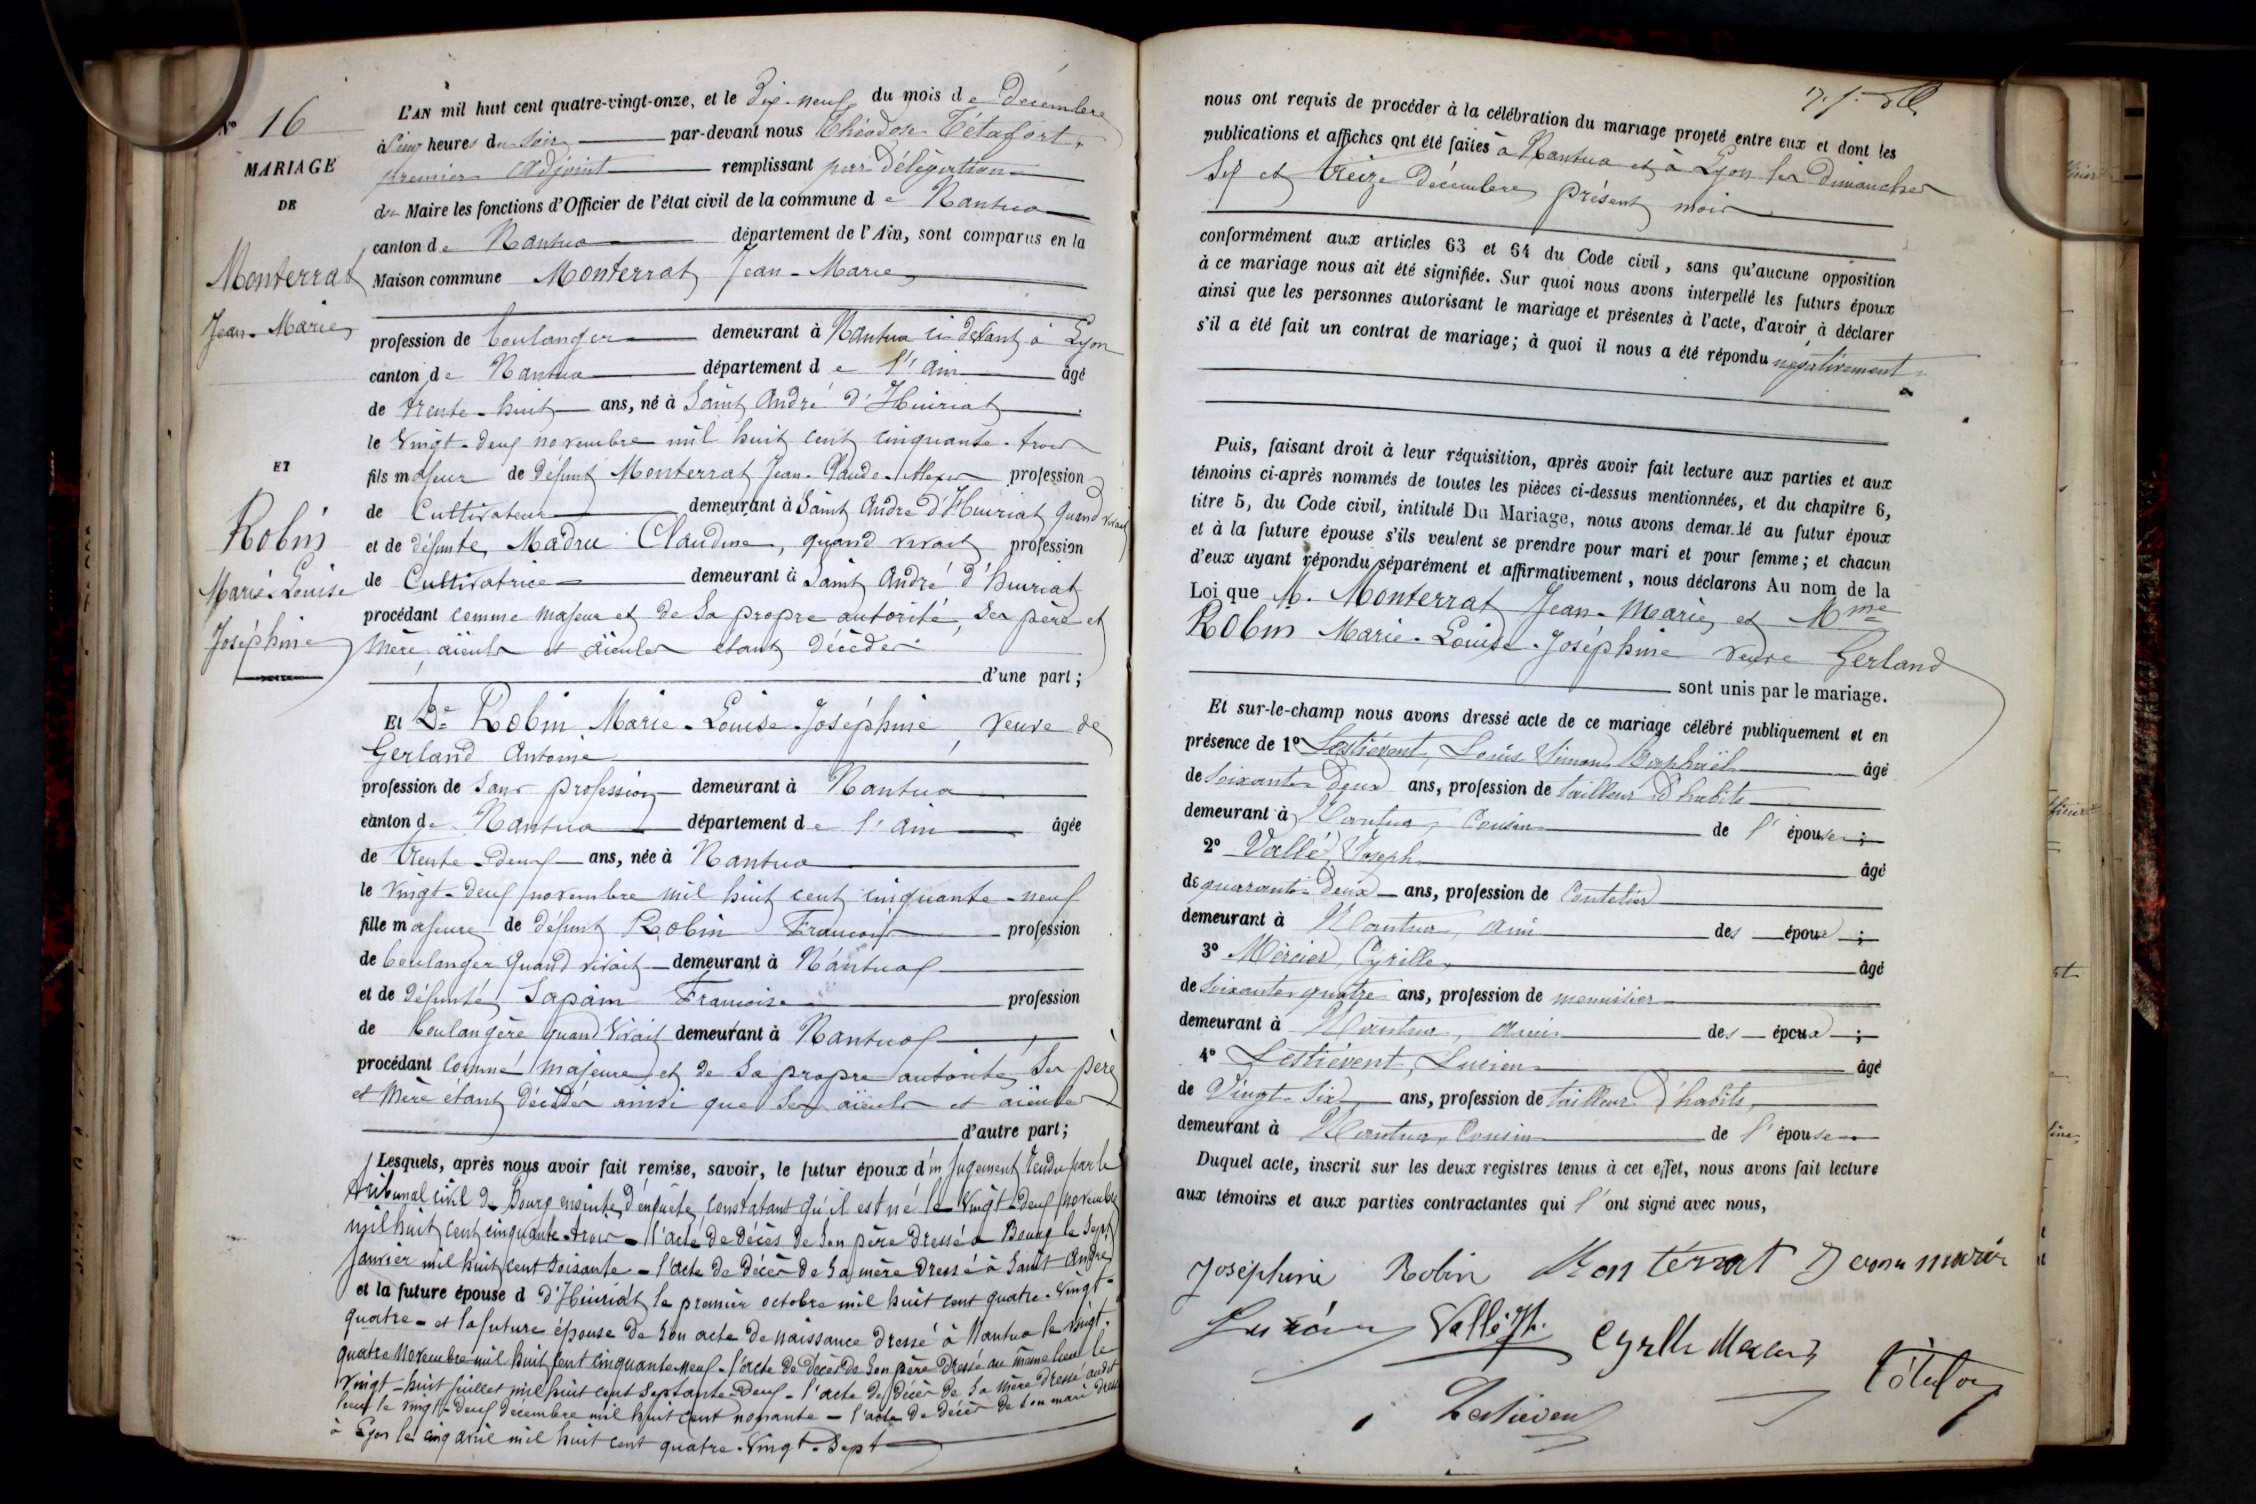 N° 16
MARIAGE
DE
Monterrat
Jean-Marie
ET
Robin
Marie-Louise
Joséphine
L'AN mil huit cent quatre-vingt-onze, et le Dix-neuf du mois de décembre
à heures du soir par-devant nous Théodose Tétafort,
premier adjoint remplissant par délégation
du Maire les fonctions d'Officier de l'état civil de la commune de Nantua
canton de Nantua département de l'Ain, sont comparus en la
Maison commune Monterrat Jean-Marie
profession de boulanger demeurant à Nantua ci devant à Lyon
canton de Nantua département de l'ain âgé
de trente-huit ans, né à Saint André d'Huiriat
le vingt-deux novembre mil huit cent cinquante-trois
fils majeur de défunt Monterrat Jean-Claude-Alexis profession
de Cultivateur demeurant à Saint André d'Huiriat quand vivait
et de défunte Madru Claudine, quand vivait profession
de Cultivatrice demeurant à Saint André d'huiriat
procédant comme majeur et de sa propre autorité, ses père et
mère, aïeuls et aïeules étant décédés
d'une part;
Et De Robin Marie-Louise-Joséphine, veuve de
Gerland Antoine
profession de sans profession demeurant à Nantua
canton de Nantua département de l'ain âgée
de trente-deux ans, née à Nantua
le vingt-deux novembre mil huit cent cinquante-neuf
fille majeure de défunt Robin François profession
de boulanger quand vivait demeurant à Nantua
et de défunte Sapain Françoise profession
de boulangère quand vivait demeurant à Nantua
procédant comme majeure et de sa propre autorité, ses père
et mère étant décédés ainsi que ses aïeuls et aïeules
d'autre part;
Lesquels, après nous avoir fait remise, savoir, le futur époux d'un jugement rendu par le
tribunal civil de Bourg ensuite d'enquête, constatant qu'il est né le vingt-deux novembre
mil huit cent cinquante-trois - l'acte de décès de son père dressé à Bourg le sept
janvier mil huit cent soixante - l'acte de décès de sa mère dressé à Saint André
et la future épouse d d'Huiriat le premier octobre mil huit cent quatre-vingt-
quatre - et la future épouse de son acte de naissance dressé à Nantua le vingt-
quatre novembre mil huit cent cinquante neuf - l'acte de décès de son père dressé au même lieu le
vingt-huit juillet mil huit cent septante-deux - l'acte de décès de sa mère dressé audit
lieu le vingt-deux décembre mil huit cent nonante - l'acte de décès de son mari dressé
à Lyon le cinq avril mil huit cent quatre-vingt-sept
nous ont requis de procéder à la célébration du mariage projeté entre eux et dont les
publications et affiches ont été faites à Nantua et à Lyon les dimanches
six et treize décembre présent mois
conformément aux articles 63 et 64 du Code civil, sans qu'aucune opposition
à ce mariage nous ait été signifiée. Sur quoi nous avons interpellé les futurs époux
ainsi que les personnes autorisant le mariage et présentes à l'acte, d'avoir à déclarer
s'il a été fait un contrat de mariage; à quoi il nous a été répondu négativement
Puis, faisant droit à leur réquisition, après avoir fait lecture aux parties et aux
témoins ci-après nommés de toutes les pièces ci-dessus mentionnées, et du chapitre 6,
titre 5, du Code civil, intitulé Du Mariage, nous avons demandé au futur époux
et à la future épouse s'ils veulent se prendre pour mari et pour femme; et chacun
d'eux ayant répondu séparément et affirmativement, nous déclarons Au nom de la
Loi que M. Monterrat Jean-Marie et Mme
Robin Marie-Louise-Joséphine veuve Gerland
sont unis par le mariage.
Et sur-le-champ nous avons dressé acte de ce mariage célébré publiquement et en
présence de 1° Lestiévent, Louis Simon Raphaël âgé
de soixante deux ans, profession de tailleur d'habits
demeurant à Nantua, Cousin de l'épouse;
2° Vallé Joseph âgé
de quarante-deux ans, profession de Coutelier
demeurant à Nantua, ami des époux;
3° Mercier Cyrille âgé
de soixante quatre ans, profession de menuisier
demeurant à Nantua, ami des époux;
4° Lestiévent, Lucien âgé
de Vingt-six ans, profession de tailleur d'habits,
demeurant à Nantua, Cousin de l'épouse
Duquel acte, inscrit sur les deux registres tenus à cet effet, nous avons fait lecture
aux témoins et aux parties contractantes qui l'ont signé avec nous,
Joséphine Robin Monterrat Jean marie
Vallé Jh. Cyrille Mercier
Lestiévent